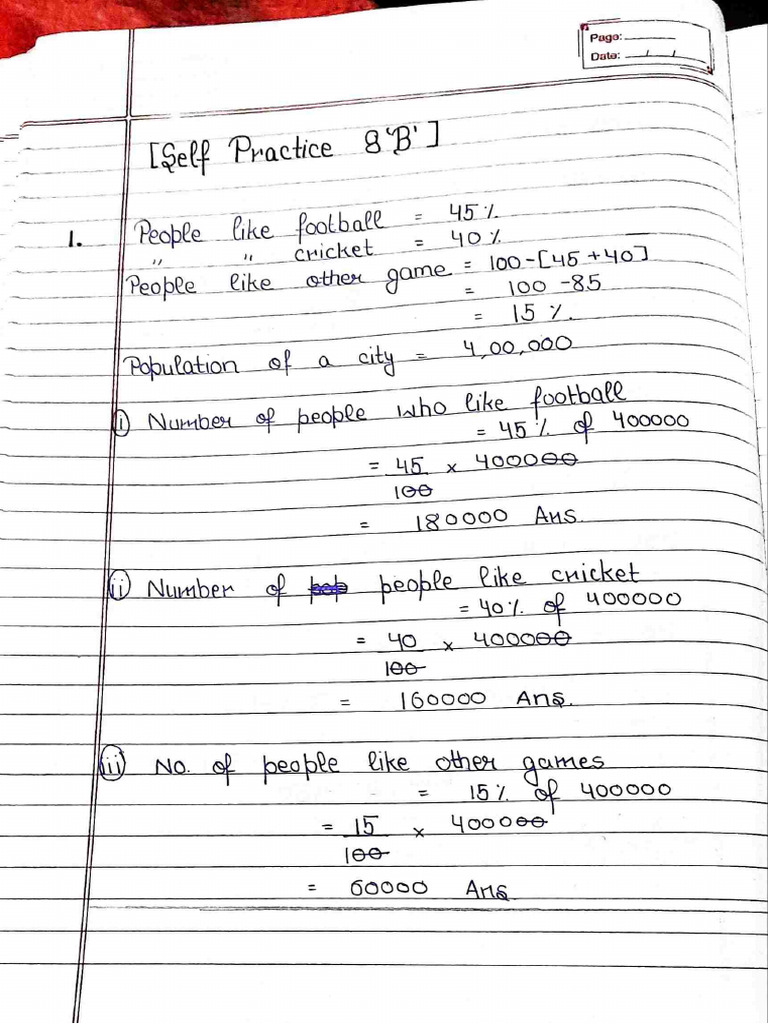 Page:
Date: / /
[Self Practice 8 'B']
1. People like football = 45 %
" " cricket = 40 %
People like other game = 100-[45+40]
= 100 -85
= 15 %.
Population of a city = 4,00,000
(i) Number of people who like football
= 45 % of 400000
= 45 × 400000
100
= 180000 Ans.
(ii) Number of pop people like cricket
= 40% of 400000
= 40 × 400000
100
= 160000 Ans.
(iii) No. of people like other games
= 15% of 400000
= 15 × 400000
100
= 60000 Ans.